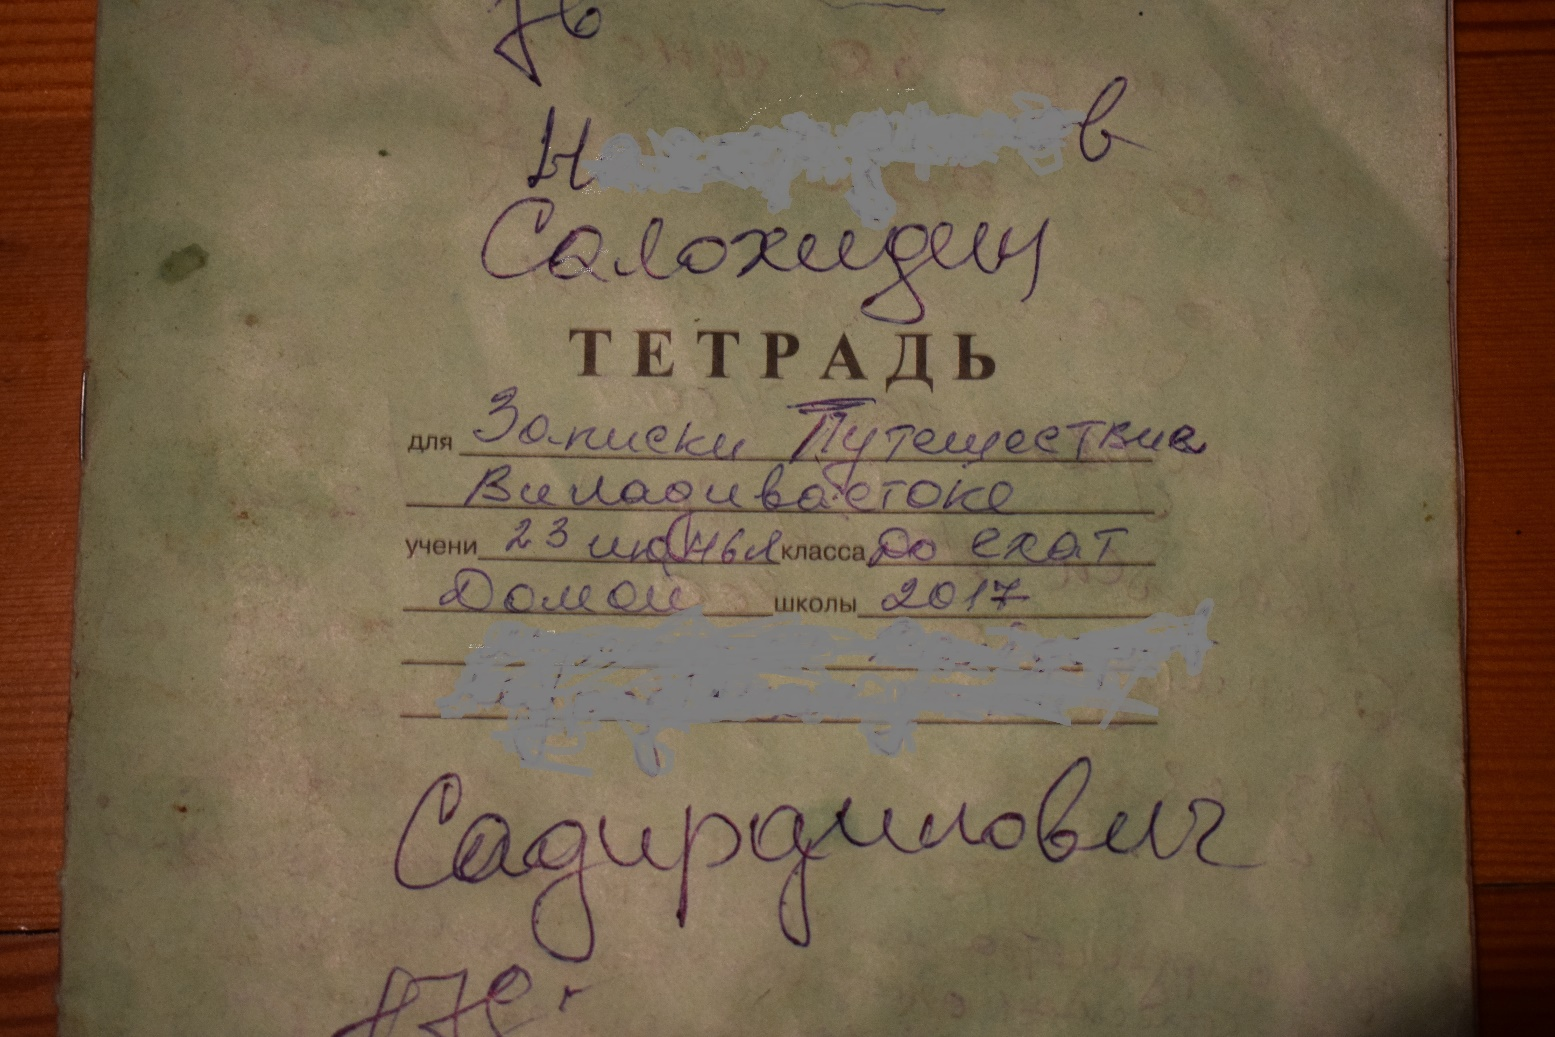 Н в
Салохидин
ТЕТРАДЬ
для Записки Путешествие
Виладивастоке
учени 23 июнья класса до ехат
Домой школы 2017
Садирдинович